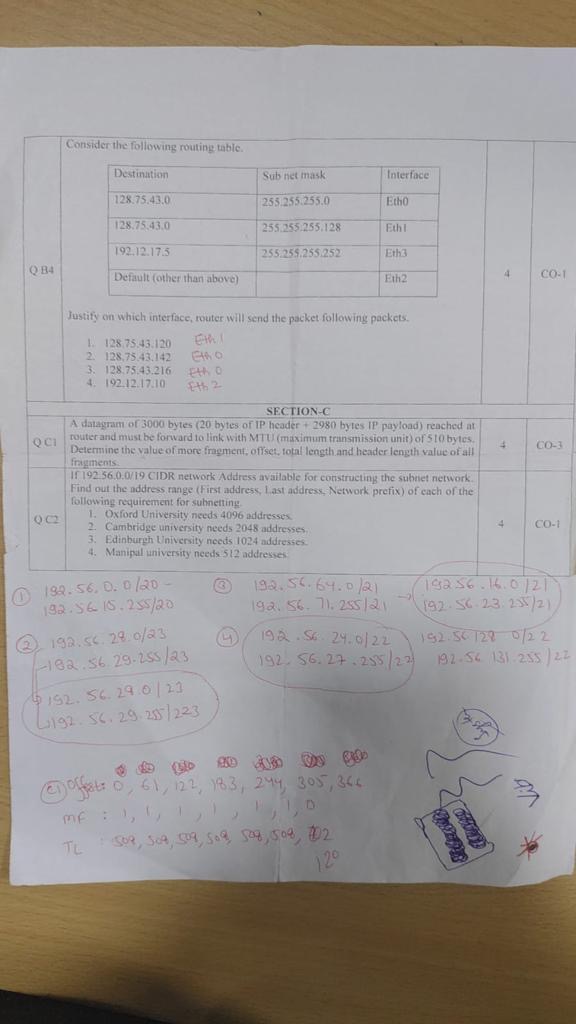 Consider the following routing table.
Destination Sub net mask Interface
128.75.43.0 255.255.255.0 Eth0
128.75.43.0 255.255.255.128 Eth1
192.12.17.5 255.255.255.252 Eth3
Default (other than above) Eth2
Q B4 4 CO-1
Justify on which interface, router will send the packet following packets.
1. 128.75.43.120 Eth 1
2. 128.75.43.142 Eth 0
3. 128.75.43.216 Eth 0
4. 192.12.17.10 Eth 2
SECTION-C
A datagram of 3000 bytes (20 bytes of IP header + 2980 bytes IP payload) reached at
Q C1 router and must be forward to link with MTU (maximum transmission unit) of 510 bytes. 4 CO-3
Determine the value of more fragment, offset, total length and header length value of all
fragments.
If 192.56.0.0/19 CIDR network Address available for constructing the subnet network.
Find out the address range (First address, Last address, Network prefix) of each of the
following requirement for subnetting.
1. Oxford University needs 4096 addresses.
Q C2 2. Cambridge university needs 2048 addresses. 4 CO-1
3. Edinburgh University needs 1024 addresses.
4. Manipal university needs 512 addresses.
① 192.56.0.0/20 -
192.56.15.255/20
③ 192.56.64.0/21
192.56.71.255/21
→ 192.56.16.0/21
192.56.23.255/21
② 192.56.28.0/23
-192.56.29.255/23
192.56.29.0/23
192.56.29.255/223
④ 192.56.24.0/22
192.56.27.255/22
192.56.128.0/22
192.56.131.255/22
C1 Offset: 0, 61, 122, 183, 244, 305, 366
MF : 1, 1, 1, 1, 1, 1, 0
TL : 508, 508, 508, 508, 508, 508,
120